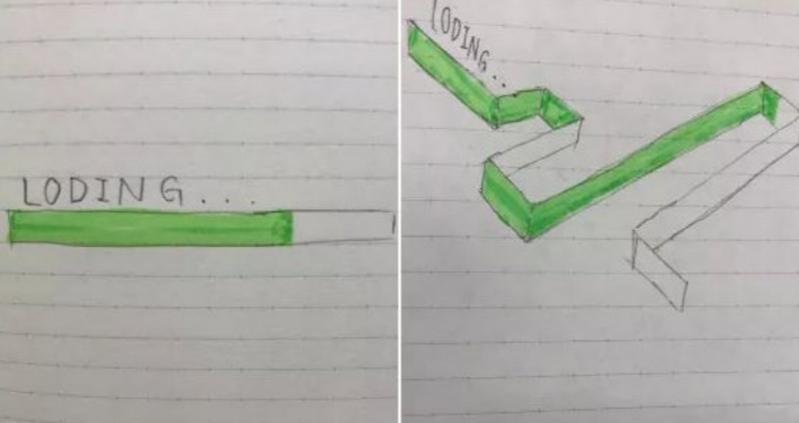 LODING...
LODING...